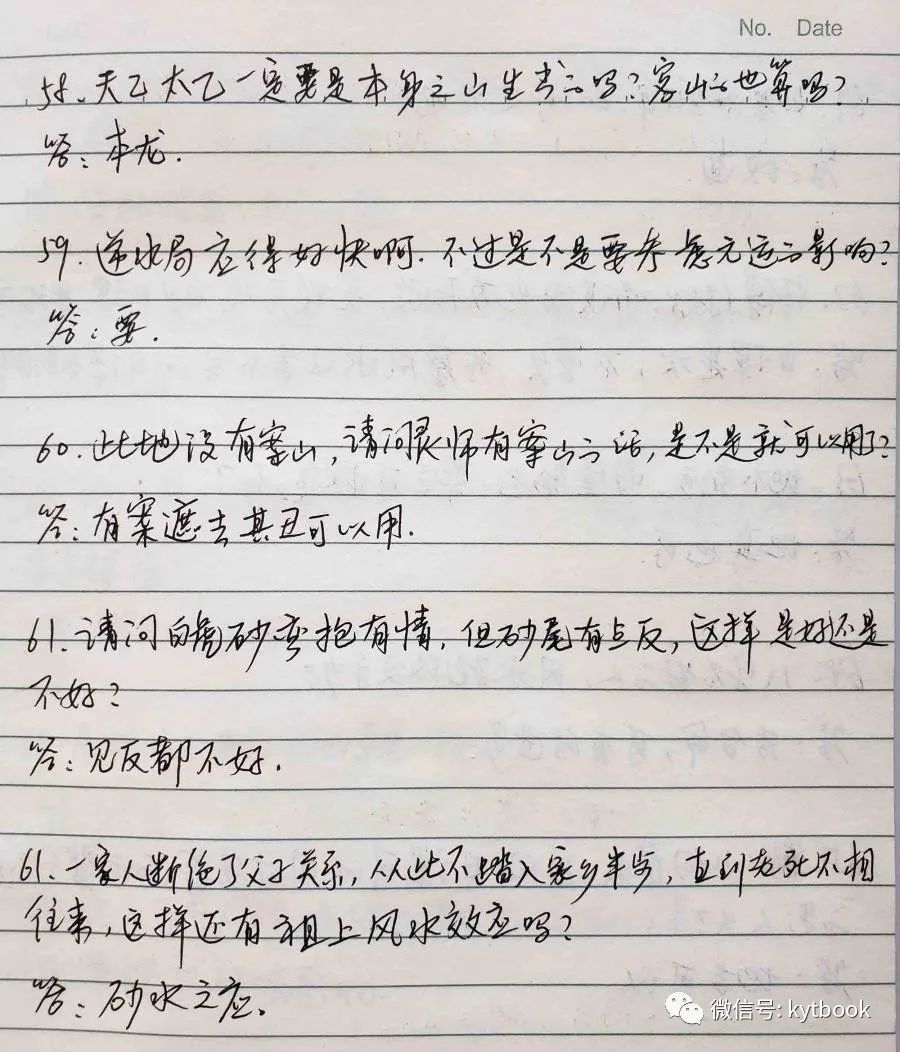 No. Date
58、天乙太乙一定要是本身之山生出的吗?客山的也算吗?
答:本龙.
59. 逆水局应得好快啊.不过是不是要考虑元运的影响?
答:要.
60. 此地没有案山,请问灵师有案山的话,是不是就可以用了?
答:有案遮去其丑可以用.
61.请问白虎砂弯抱有情,但砂尾有点反,这样是好还是
不好?
答:见反都不好.
61.一家人断绝了父子关系,从此不踏入家乡半步,直到老死不相
往来,这样还有祖上风水效应吗?
答:砂水之应.
微信号: kytbook